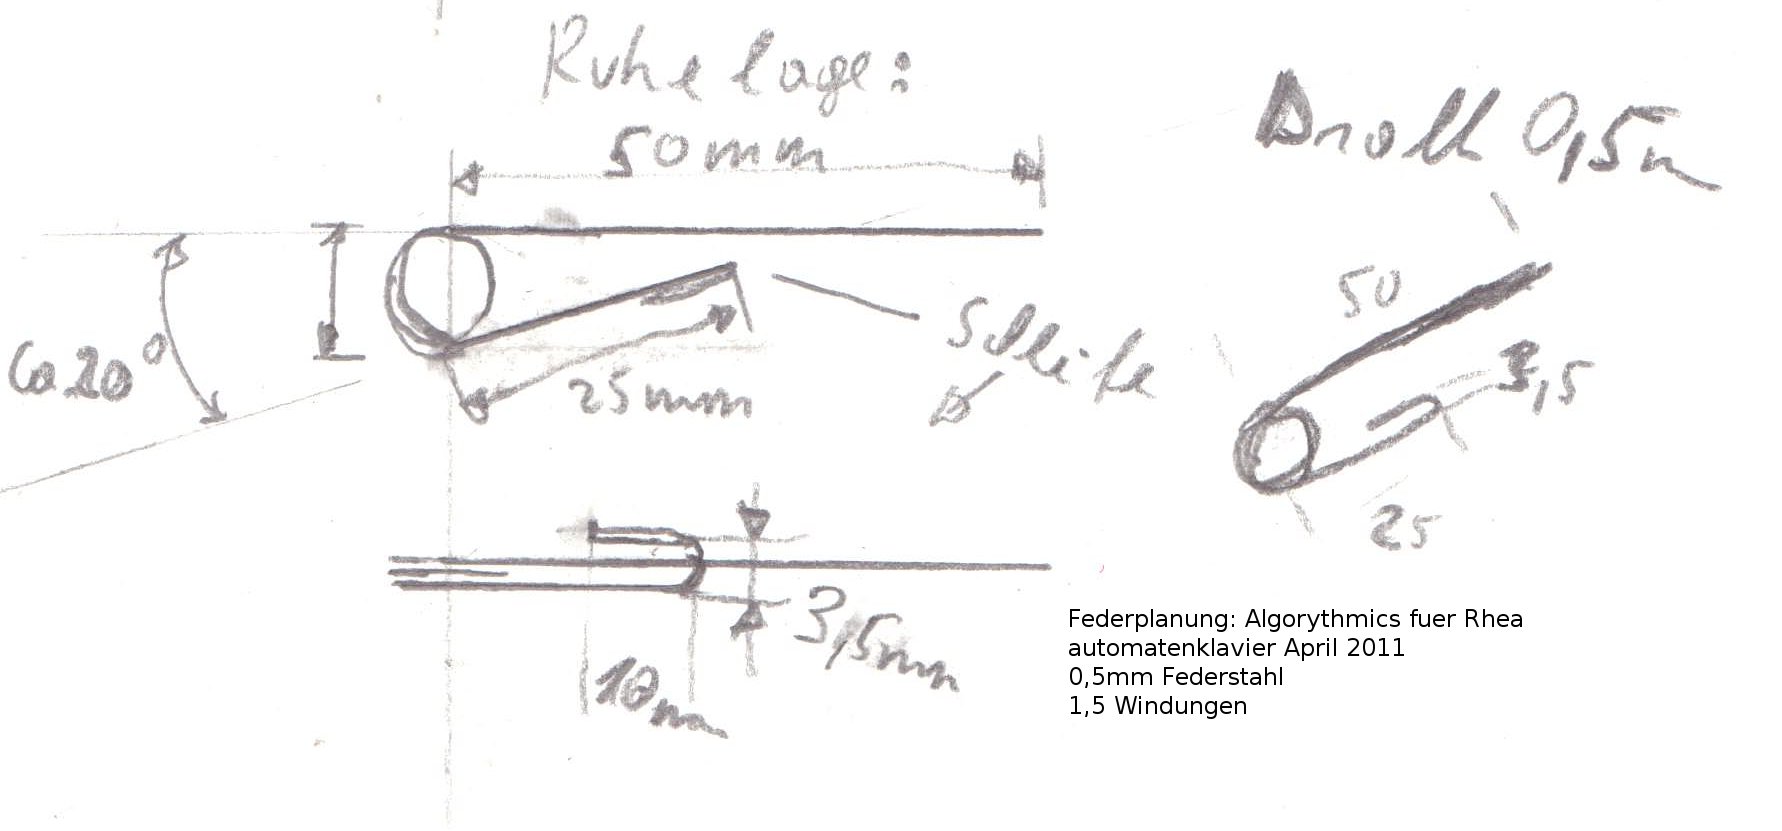 Ruhelage:
50mm
Draht 0,5m
Ca 20°
25mm
Schleife
50
3,5
25
3,5mm
10mm
Federplanung: Algorythmics fuer Rhea
automatenklavier April 2011
0,5mm Federstahl
1,5 Windungen